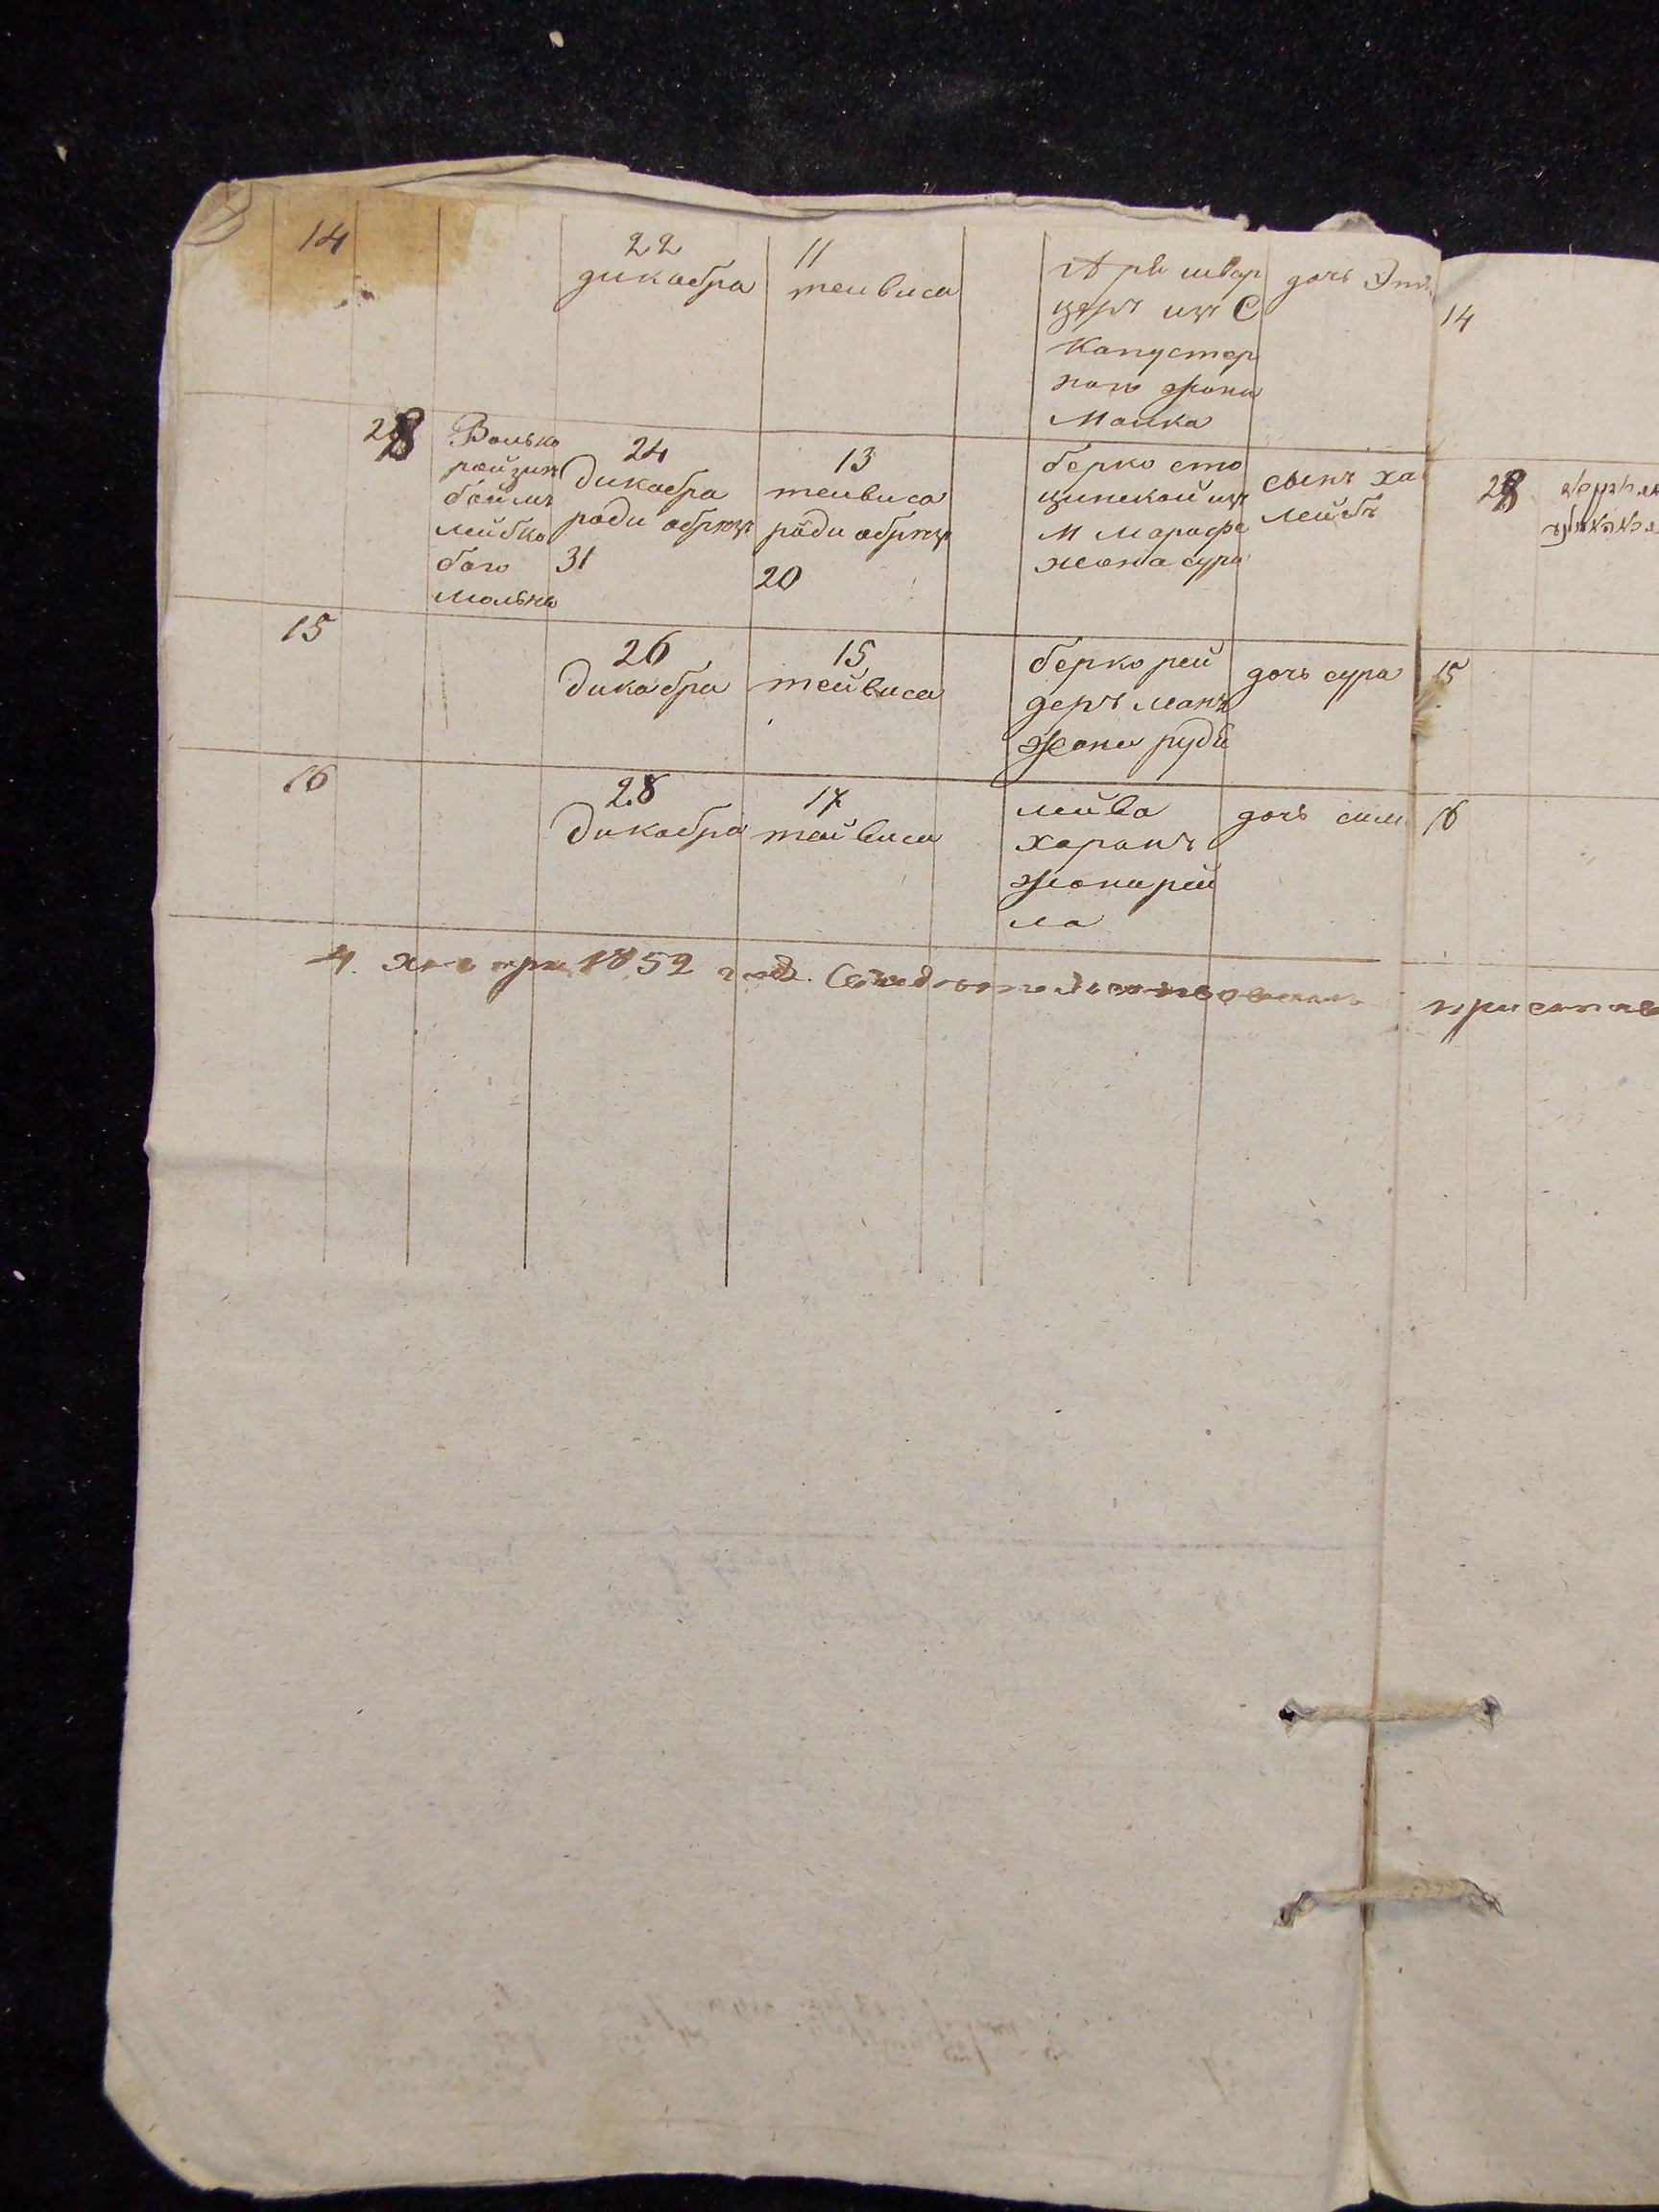 14
22
дикабра
11
теивиса
Арь швар
церъ изъ С
Капустер
ного жона
Малка
дочь Эт
14
28
Волько
ройзин
боймъ
лейбко
бого
мольно
24
дикабра
роди обрезъ
31
13
теивиса
роди обрезъ
20
берко сто
цинской изъ
М Марафе
жона сура
сынъ ха
лейбъ
28
15
26
дикабра
15
тейвиса
берко рей
деръ манъ
жона рудя
дочь сура
15
16
28
дикабра
17
тейвиса
лейва
харанъ
жона рей
ла
дочь сим
16
4. января 1852 год.